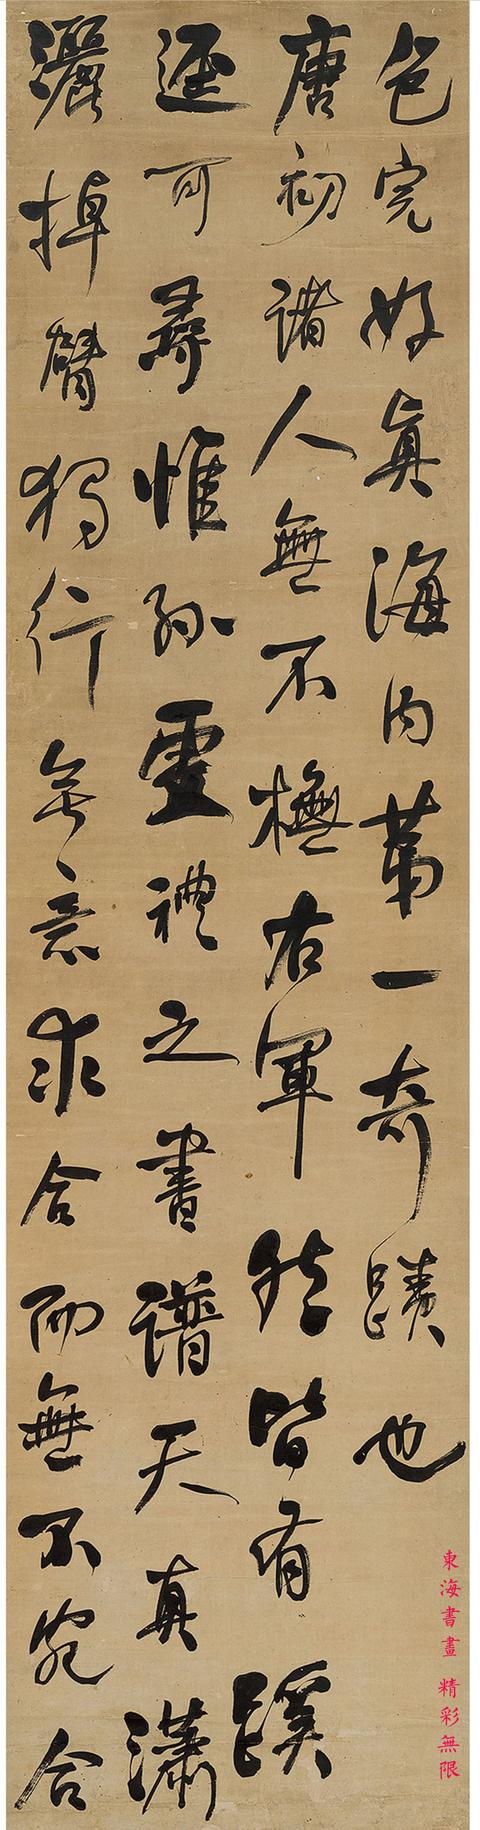 色完好真海內第一奇蹟也
唐初諸人無不橅右軍然皆有蹊
逕可尋惟孫虔禮之書譜天真瀟
灑掉臂獨行無意求合而無不宛合
東海書畫 精彩無限